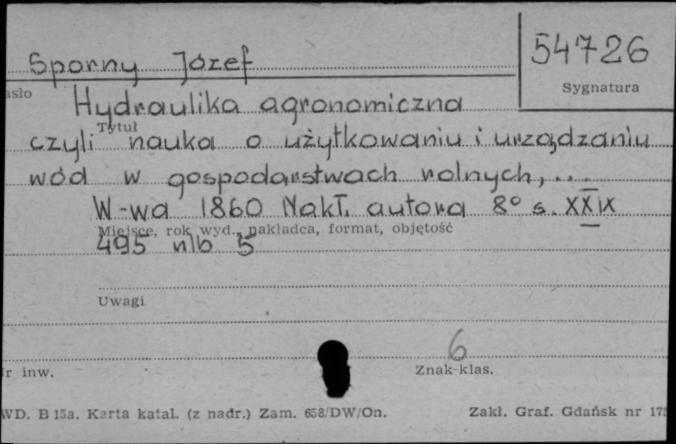 54726
Sporny Józef
asło
Sygnatura
Hydraulika agronomiczna
Tytuł
czyli nauka o użytkowaniu i urządzaniu
wód w gospodarstwach rolnych,...
W-wa 1860 Nakł. autora 8° s. XXIX
Miejsce, rok wyd., nakładca, format, objętość
495 nlb 5
Uwagi
6
r inw.
Znak klas.
WD. B 15a. Karta katal. (z nadr.) Zam. 658/DW/On.
Zakł. Graf. Gdańsk nr 175